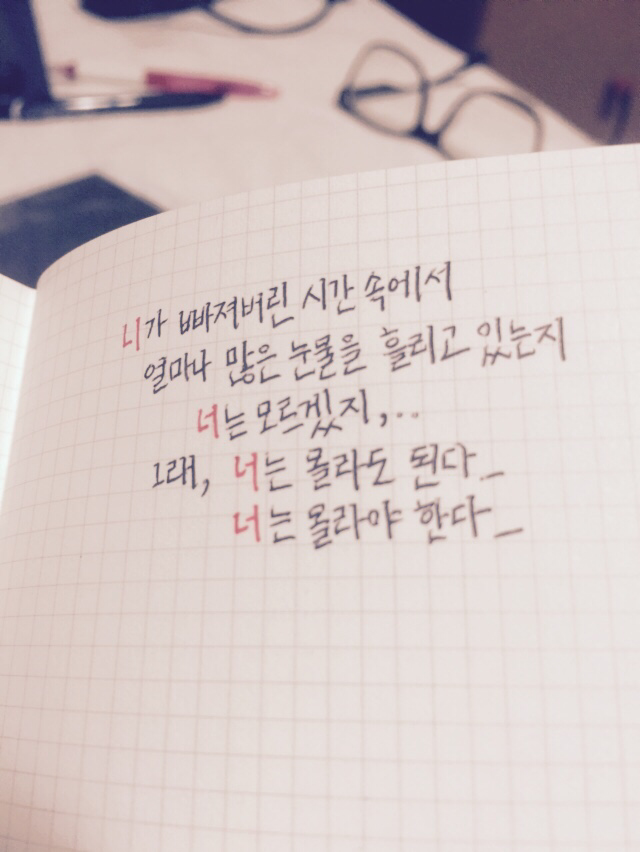 니가 빠져버린 시간 속에서
얼마나 많은 눈물을 흘리고 있는지
너는 모르겠지,..
그래, 너는 몰라도 된다_
너는 몰라야 한다_